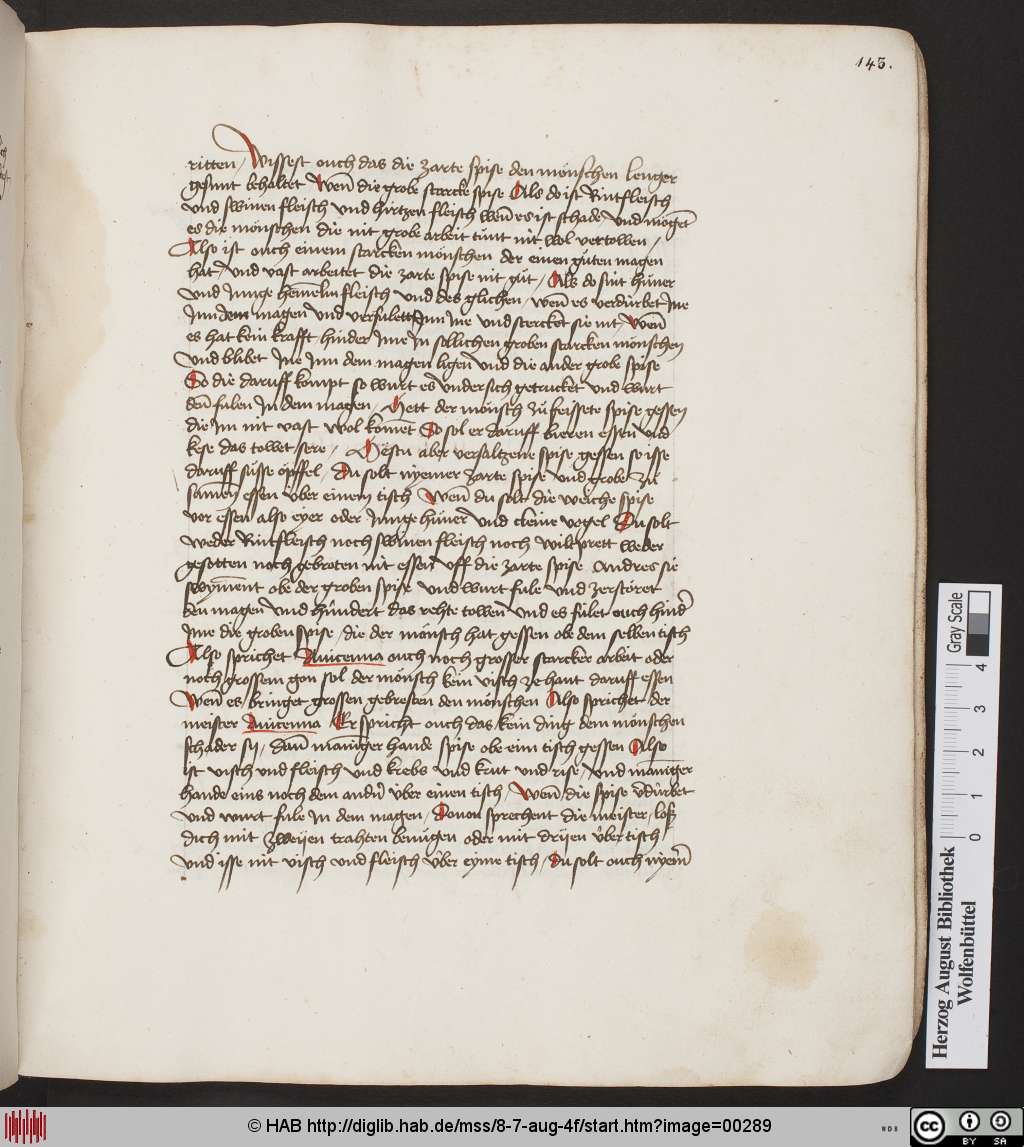 143.
ritten / Wissest ouch das die zarte spise den mönschen lenger
gesunt behaltet Wen̄ die grobe starcke spise Als do ist Rintfleisch
vnd swinen fleisch vnd hirtzen fleisch wen̄ es ist schade vnd mögēt
es die mönschen die nit grobe arbeit tünt nit wol vertowen /
Also ist ouch einem starcken mönschen der einen güten magen
hat / vnd vast arbeitet die zarte spise nit güt / Als do sint hüner
vnd Junge hemelin fleisch vnd des glichen / wen̄ es verdürbet Jne
Jnn dem magen vnd verfulett Jnn Jne vnd stercket sie nit / Wen̄
es hat kein krafft hinder Jme Jn sollichen groben starcken mönschen
vnd blibet Jne Jnn dem magen ligen vnd die ander grobe spise
So die daruff kompt so wurt es vndersich getrucket vnd wurt
den̄ fulen Jn dem magen / Hett der mönsch zü feissete spise gessen
die Jm nit vast wol komet So sol er daruff bieren essen vnd
kese das towet sere / Hestu aber versaltzene spise gessen so isse
daruff süsse öpffel / du solt nyemer zarte spise vnd grobe zü
samen essen über einem tisch Wen̄ du solt die weiche spise
vor essen also eyer oder Junge hüner vnd cleine vogel Du solt
weder Rintfleisch noch swinen fleisch noch wiltprett weder
gesotten noch gebroten nit essen vff die zarte spise Andres sie
swyment obe der groben spise vnd wurt fule vnd zerstöret
den magen vnd hindert das rehte towen vnd es fület ouch hinđ
Jme die groben spise / die der mönsch hat gessen obe dem selben tisch
Also sprichet Auicenna ouch noch grosser starcker arbeit oder
noch grossem gon sol der mönsch kein visch ze hant daruff essen
Wen̄ es bringet grossen gebresten den mönschen Also sprichet der
meister Auicenna Er spricht ouch das kein ding dem mönschen
schader sy / dan̄ maniger hande spise obe eim tisch gessen Also
ist visch vnd fleisch vnd krebs vnd krut vnd rise / vnd maniger
hande eins noch dem andn̄ über einen tisch Wen̄ die spise v̄dürbet
vnd wurt fule Jn dem magen / Douon sprechent die meister / losz
dich mit zweyen trahten benügen oder mit dryen über tisch
vnd isse nit visch vnd fleisch über eyme tisch / Du solt ouch nyem̄
Herzog August Bibliothek
Wolfenbüttel
Gray Scale
0 1 2 3 4
© HAB http://diglib.hab.de/mss/8-7-aug-4f/start.htm?image=00289
WDB
cc BY SA